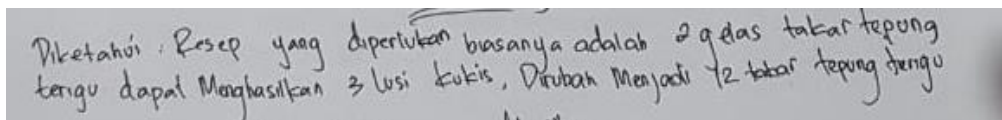 Diketahui : Resep yang diperlukan biasanya adalah 2 gelas takar tepung
terigu dapat Menghasilkan 3 lusi kukis, Dirubah Menjadi 1/2 takar tepung terigu